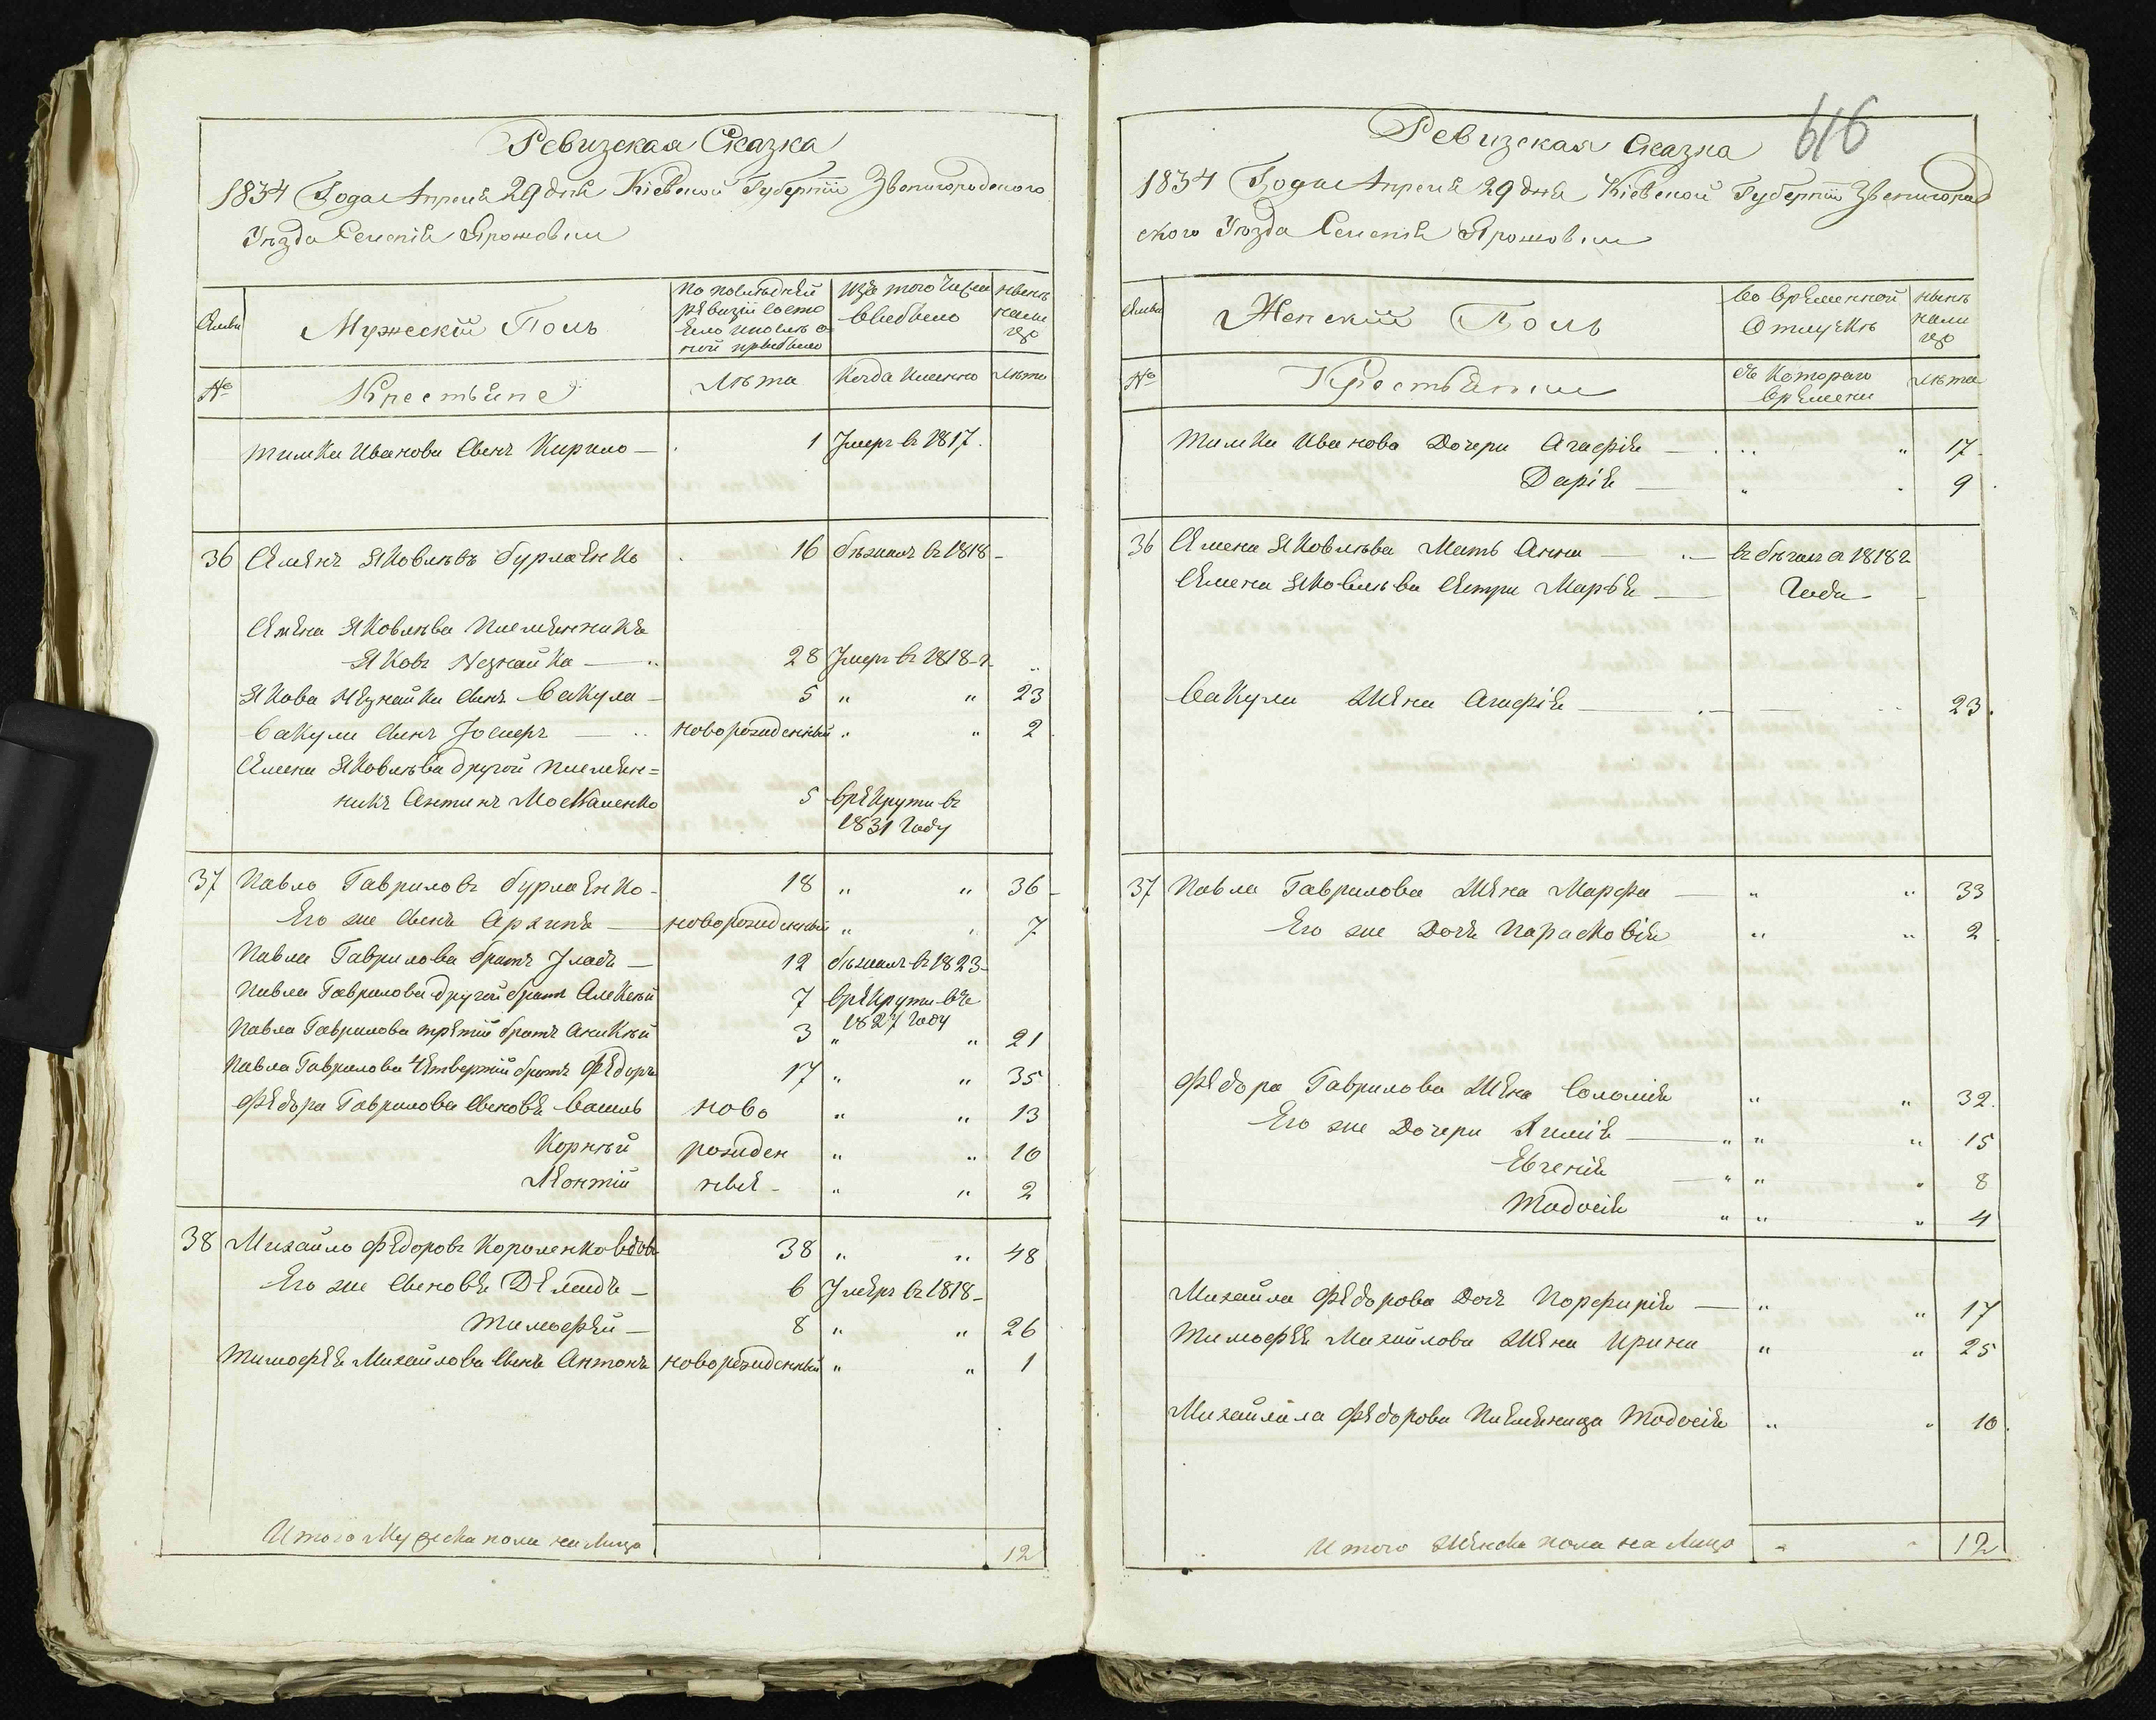 Ревизская Сказка
1834 Года Апреля 29 дня Кіевской Губерніи Звенигородского
Уезда Селенія Ярошовки
Мужескій Полъ
по последней
ревизіи состо
яло и после о
ной прибыло
Изъ того числа
выбыло
ныне
нали
цо
№
Крестьяне
Лета
Когда именно
Лета
Тимка Иванова сынъ Кирило — 1 Умеръ въ 1817.
36 Семенъ Яковлевъ Бурлаенко 16 бежалъ въ 1818 -
Семена Яковлева племянникъ
Яковъ Незнайка — 28 Умеръ въ 1818 г.
Якова Незнайки сынъ Вакула — 5 " " 23
Вакули сынъ Іосиеръ — новорожденный " " 2
Семена Яковлева другой племян=
никъ Антинъ Москаленко 5 Врекрути въ
1831 году
37 Павло Гавриловъ Бурлаенко - 18 " " 36 -
Его же сынъ Архипъ — новорожденный " " 7
Павла Гаврилова братъ Уладъ — 12 бежалъ въ 1823 -
Павла Гаврилова другой братъ Алексей 7 Врекрути въ
1827 году
Павла Гаврилова третій братъ Аникей 3 " " 21
Павла Гаврилова четвертій братъ Федоръ 17 " " 35
Федора Гаврилова сыновья Василь ново " " 13
Корней рожден " " 10
Леонтій ные - " " 2
38 Михайло Федоровъ Короленко вдов 38 " " 48
Его же сыновья Демидъ — 6 Умеръ въ 1818 -
Тимофей — 8 " " 26
Тимофея Михайлова сынъ Антонъ новорожденный " " 1
Итого Мужеска пола на лицо 12
616
Ревизская Сказка
1834 Года Апреля 29 дня Кіевской Губерніи Звенигород
ского Уезда Селенія Ярошовки
Женскій Полъ
Во временной
Отлучке
ныне
нали
цо
№
Крестьянки
Съ котораго
времени
Лета
Тимка Иванова Дочери Агафія — " 17
Дарія — " 9
36 Семена Яковлева Мать Анна — въ бегахъ съ 1818 г
Семена Яковлева сестра Марья — Года -
Вакули Жена Агафія — 23.
37 Павла Гаврилова Жена Марфа — " " 33
Его же Дочь Парасковія " " 2
Федора Гаврилова Жена Соломія " " 32.
Его же Дочери Якилія — " " " 15
Евгенія — " " " 8
Тодосія " " " 4
Михайла Федорова Дочь Порфирія — " " 17
Тимофея Михайлова Жена Ирина " " 25
Михайлала Федорова племяница Тодосія " " 10
Итого Женска пола на лицо " " 12